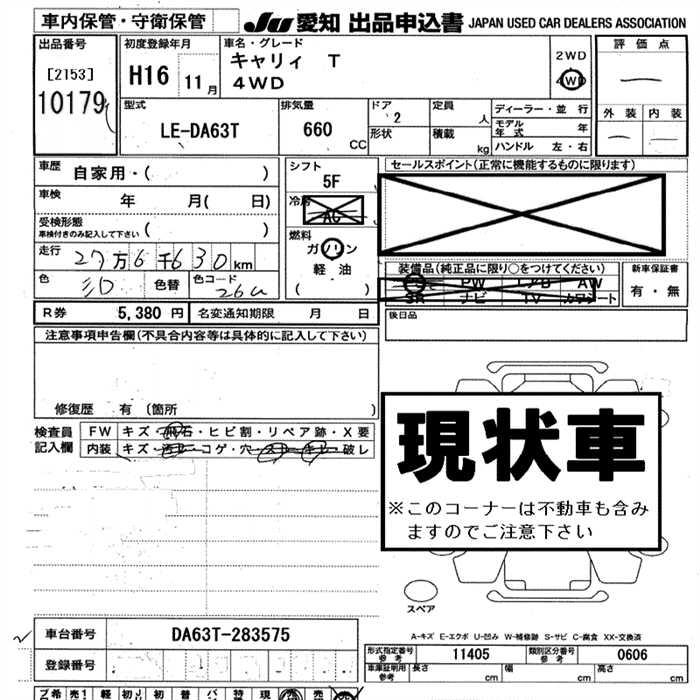 車内保管・守衛保管
JU 愛知 出品申込書 JAPAN USED CAR DEALERS ASSOCIATION
出品番号
[2153]
10179
初度登録年月
H16 11月
車名・グレード
キャリィ T
4WD
2WD
4WD
評価点
外装 内装
型式
LE-DA63T
排気量
660
CC
ドア
2
形状
定員
人
積載
kg
ディーラー・並行
モデル年式 年
ハンドル 左・右
車歴
自家用・( )
車検
年 月( 日)
受検形態
車検付きのみ記入して下さい ( )
走行
27万6千630km
色
色替
色コード
26U
シフト
5F
冷房
AC
燃料
ガソリン
軽油
( )
セールスポイント(正常に機能するものに限ります)
装備品(純正品に限り○をつけてください)
PS PW エアB AW
SR ナビ TV カワシート
新車保証書
有・無
後日品
R券 5,380円 名変通知期限 月 日
注意事項申告欄(不具合内容等は具体的に記入して下さい)
修復歴 有 〔箇所 〕
検査員
記入欄
FW キズ・飛石・ヒビ割・リペア跡・X要
内装 キズ・汚れ・コゲ・穴・スレ・キレ・破レ
現状車
※このコーナーは不動車も含み
ますのでご注意下さい
スペア
A-キズ E-エクボ U-凹み W-補修跡 S-サビ C-腐食 XX-交換済
車台番号 DA63T-283575
登録番号
形式指定番号
参考
11405
類別区分番号
参考
0606
車庫証明用
参考
長さ cm 幅 cm 高さ cm